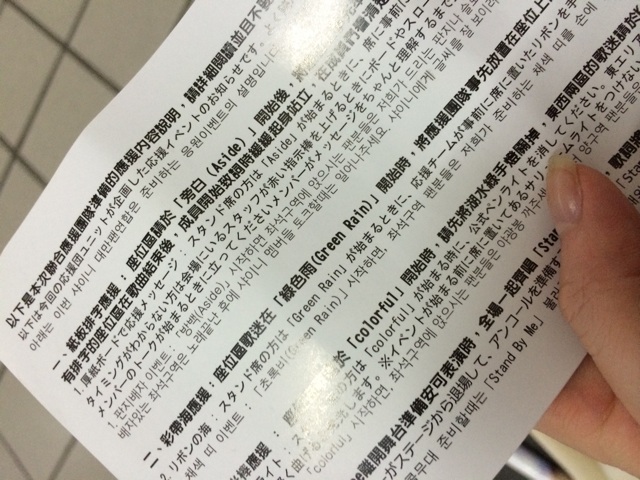 以下是本次聯合應援團隊準備的應援內容說明，請詳細閱讀並且不
以下は今回の応援団ユニットが企画した応援イベントのお知らせです。
아래는 이번 샤이니 대만팬연합은 준비하는 응원이벤트의 설명입니다
一、紙板排字應援：座位區請於「旁白（Aside）」開始後，
有排字的座位區在歌曲結束後，成員開始致詞時緩緩起身站立，在成員們
1. 厚紙ボードで応援メッセージ。スタンド席の方は「Aside」が始まるときに、席に事前に
タイミングがわからない方は会場にいるスタッフが赤い指示棒を上げるときにボードやスロー
メンバーのトークが始まるときに立ってくださいメンバーがメッセージをちゃんと理解するまで
1. 판지배자 이벤트: 「방백(Aside)」 시작하면 좌석구역에 앉으시는 팬분들은 저희가 드리는 판지나
배자있는 좌석구역은 노래끝난 후에 샤이니 멤버들 토크할때는 일어나주세요. 샤이니에게 글씨를 잘 보이
二、彩帶海應援：座位區歌迷在「綠色雨(Green Rain)」開始時，將應援團隊事先放置在座位上
2. リボンの海：スタンド席の方は「Green Rain」が始まるときに、応援チームが事前に席に置いたリボンを手
채색 띠 이벤트: 「초록비(Green Rain)」 시작하면, 좌석구역 팬분들은 저희가 준비하는 채색 띠를 손에
於「colorful」開始時，請先將滷水綠手燈關掉，東西兩區的歌迷請於
の方は「colorful」が始まる時に、公式ペンライトを消してください。東エリ
※イベントが始まる前に席に置いてあるサリュームライトをつけない
「colorful」시작하면, 좌석구역에 앉으시는 팬분들은 야광봉 꺼주세
離開舞台準備安可表演時，全場一起齊唱「Stand
がステージから退場して、アンコールを準備す
무대 준비할때는 「Stand By Me」